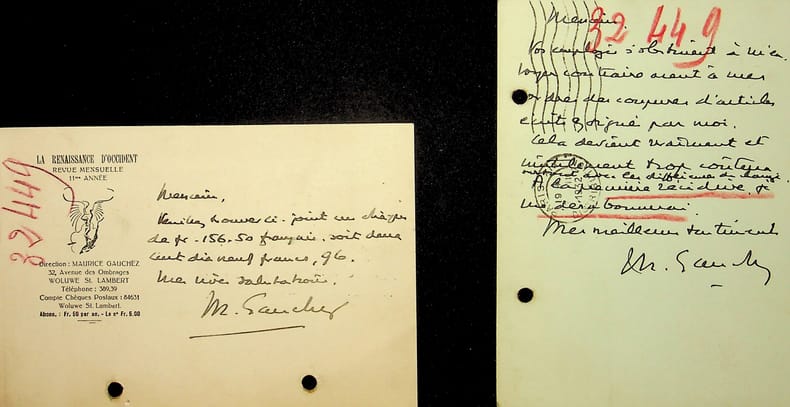 32 449
LA RENAISSANCE D'OCCIDENT
REVUE MENSUELLE
11me ANNÉE
Direction : MAURICE GAUCHEZ
32, Avenue des Ombrages
WOLUWE St. LAMBERT
Téléphone : 389.39
Compte Chèques Postaux : 84631
Woluwe St. Lambert.
Abonn. : Fr. 50 par an. - Le no Fr. 5,00
Messieurs,
Veuillez trouver ci-joint un chèque
de fr. 156.50 français, soit deux
cent dix neuf francs, 96.
Mes vives salutations.
M. Gauchez
32 449
Messieurs,
Vos employés s'obstinent à m'en-
voyer contrairement à mes
ordres des coupures d'articles
écrits & signés par moi.
Cela devient vraiment et
inutilement trop coûteux
surtout avec les différences du change.
A la première récidive, je
me désabonnerai.
Mes meilleurs sentiments
M. Gauchez